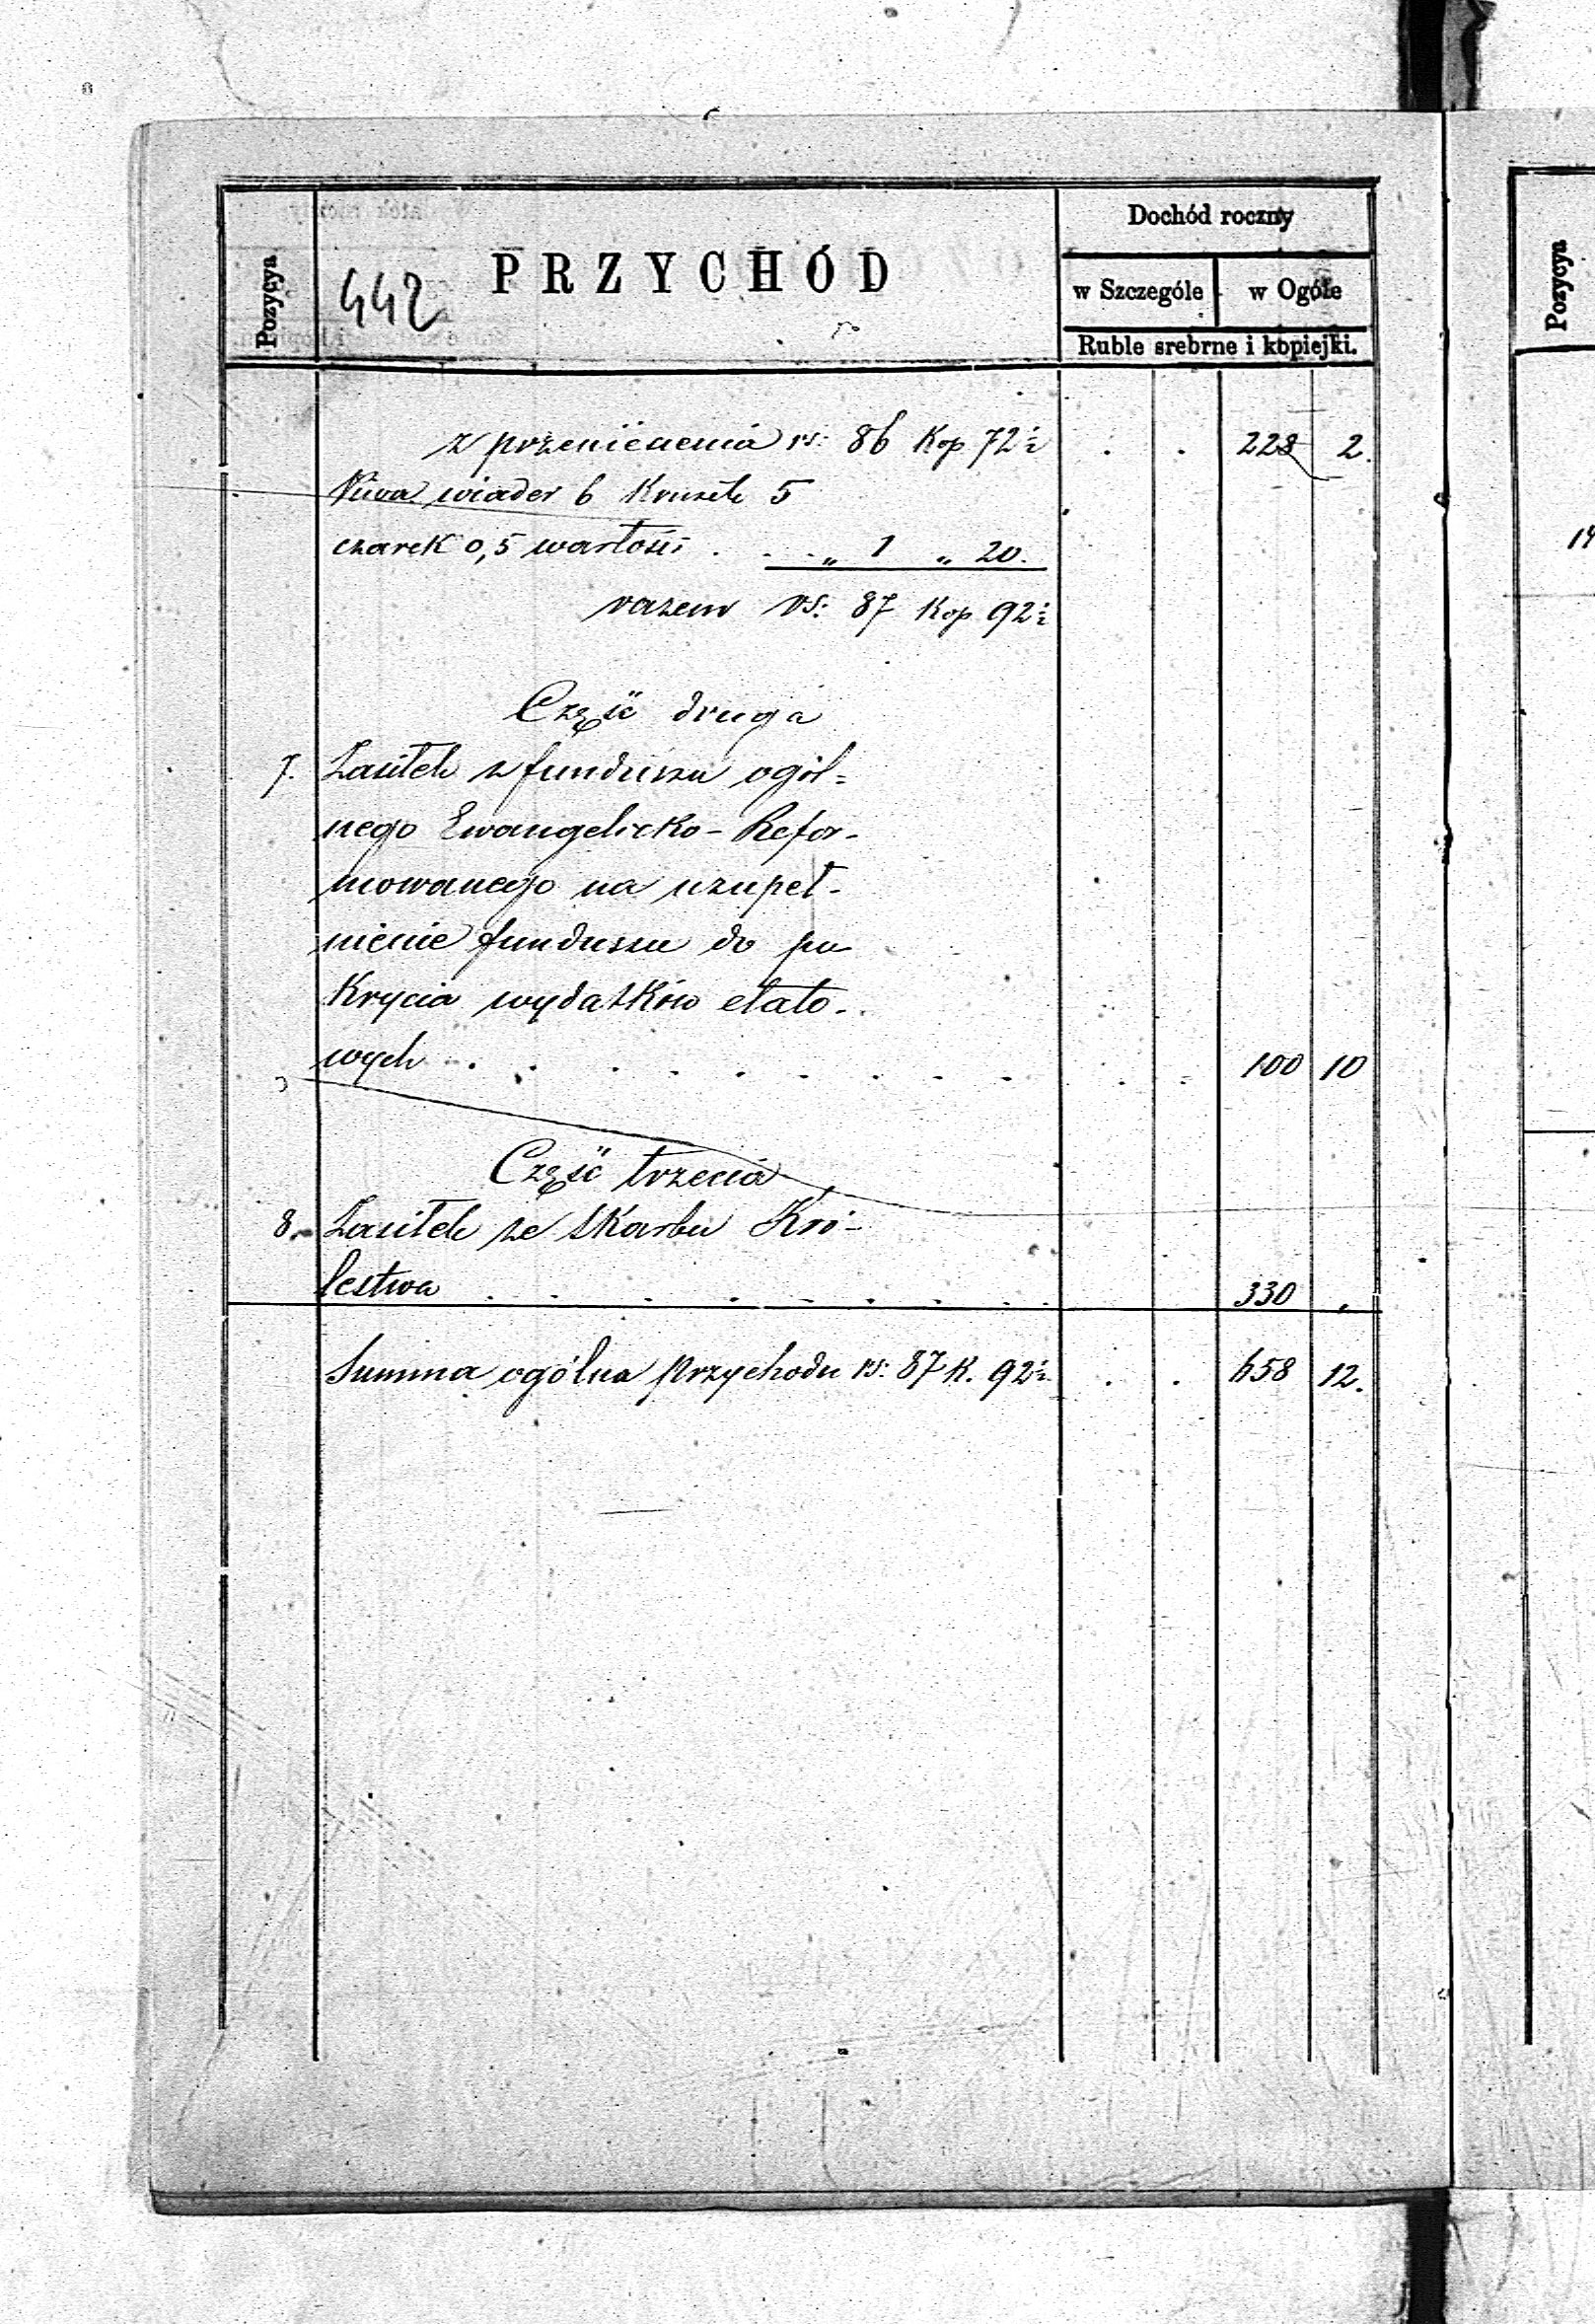 Dochód roczny
Pozycya
442
PRZYCHÓD
w Szczególe
w Ogóle
Ruble srebrne i kopiejki.
z przeniesienia rs: 86 Kop 72½ . . 228 2.
Piwa wiader 6 Krużek 5
czarek 0,5 wartości . . . „ 1 „ 20.
razem rs: 87 Kop 92½
Część druga
7. Zasiłek z funduszu ogól=
nego Ewangelicko-Refor-
mowanego na uzupeł-
nienie funduszu do po
Krycia wydatków etato-
wych . . . . . . . . . . . 100 10
Część trzecia
8. Zasiłek ze Skarbu Kró-
lestwa . . . . . . . . 330 „
Summa ogólna przychodu rs: 87 K. 92½ . . 658 12.
Pozycya
14